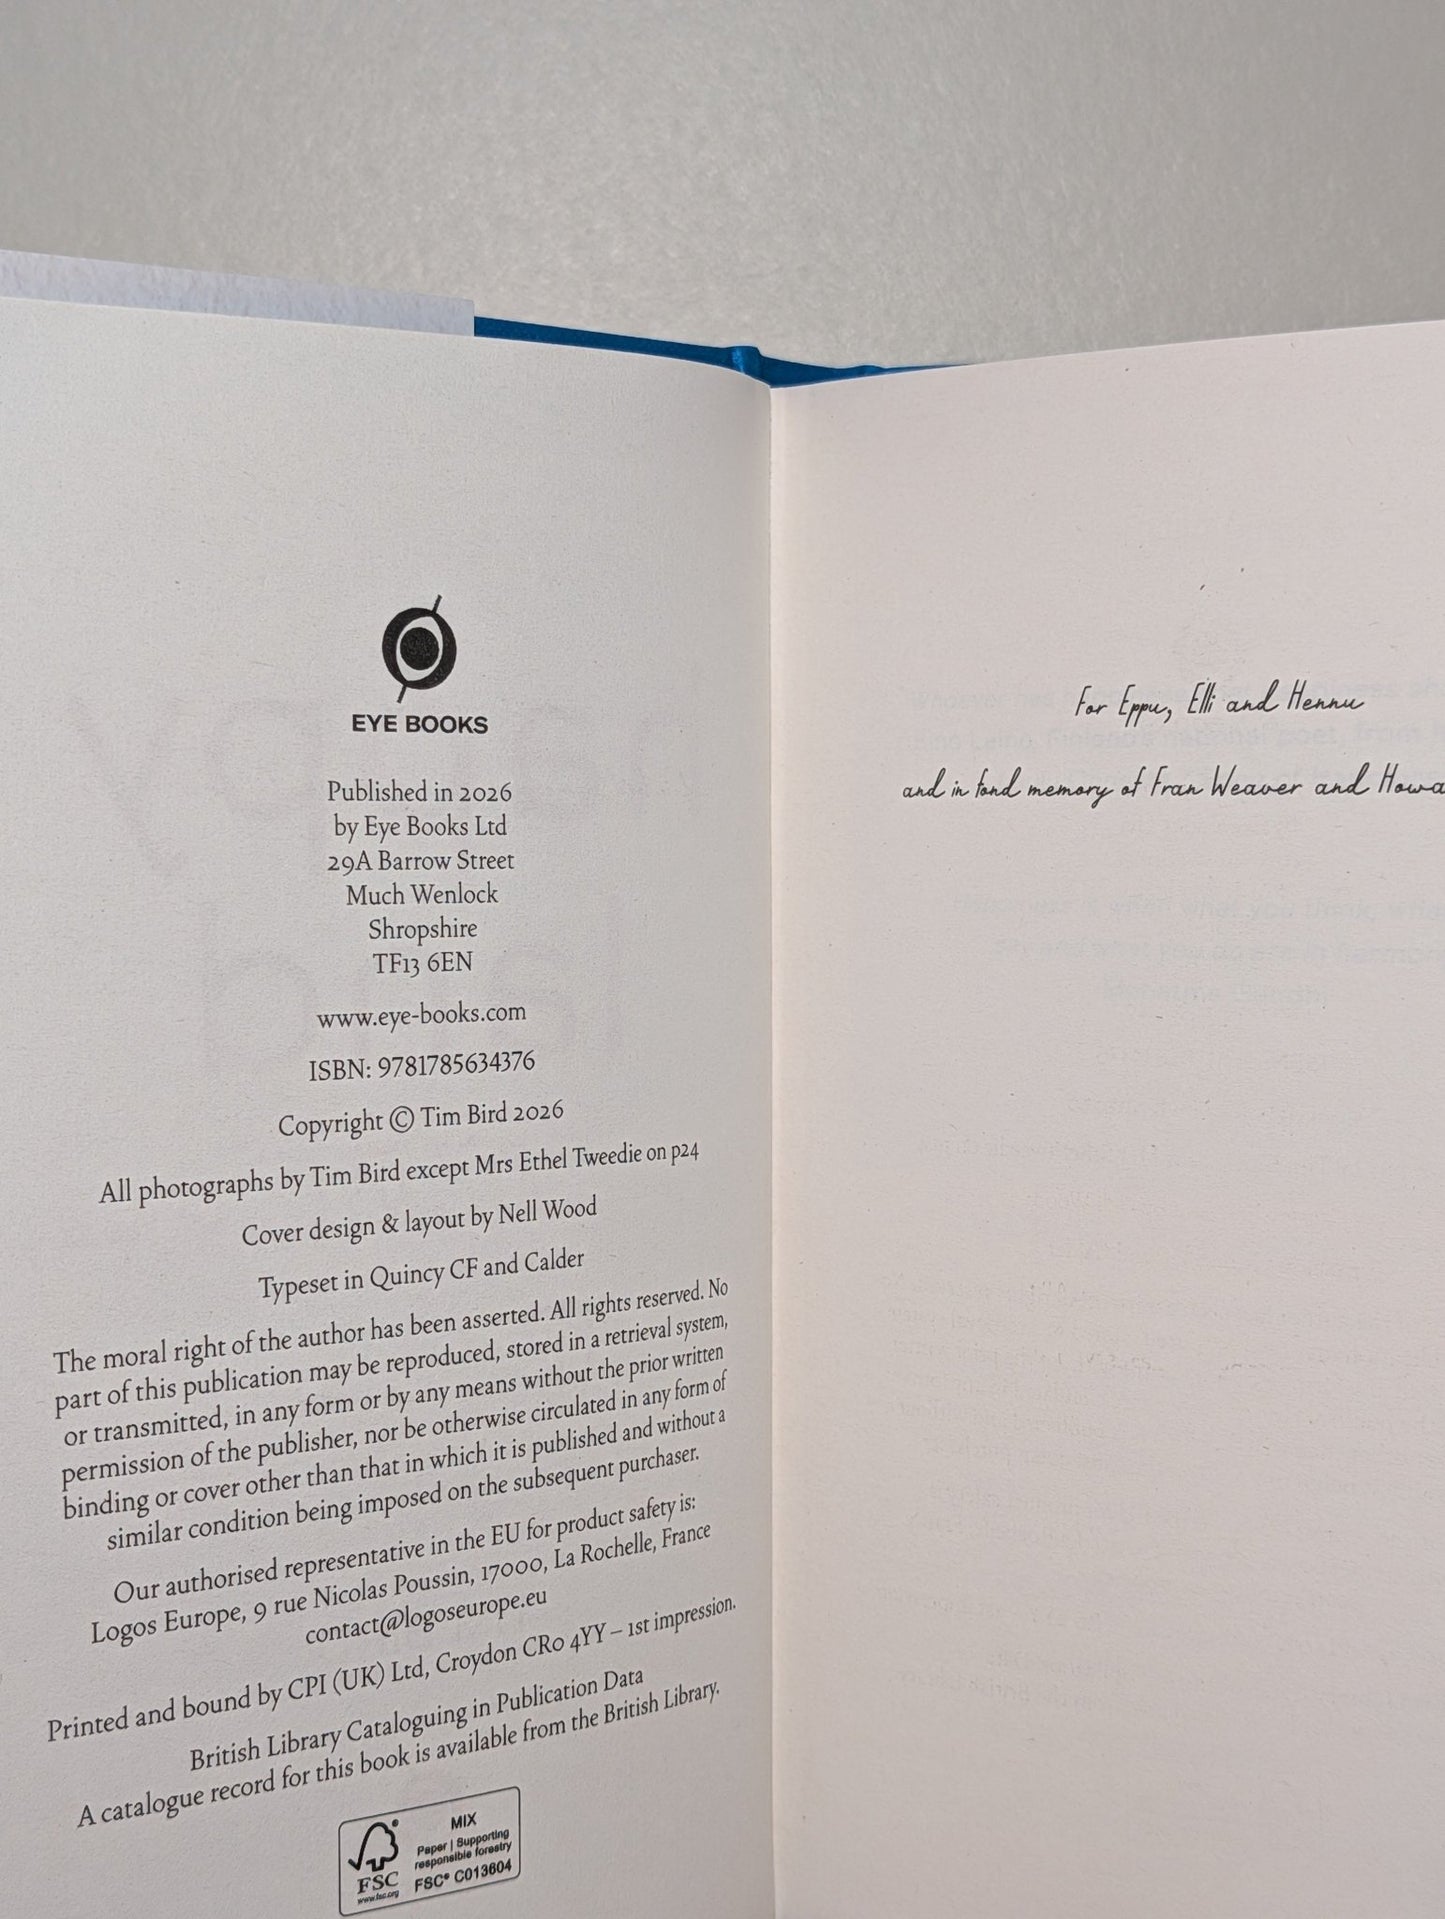 EYE BOOKS
Published in 2026
by Eye Books Ltd
29A Barrow Street
Much Wenlock
Shropshire
TF13 6EN
www.eye-books.com
ISBN: 9781785634376
Copyright © Tim Bird 2026
All photographs by Tim Bird except Mrs Ethel Tweedie on p24
Cover design & layout by Nell Wood
Typeset in Quincy CF and Calder
The moral right of the author has been asserted. All rights reserved. No
part of this publication may be reproduced, stored in a retrieval system,
or transmitted, in any form or by any means without the prior written
permission of the publisher, nor be otherwise circulated in any form of
binding or cover other than that in which it is published and without a
similar condition being imposed on the subsequent purchaser.
Our authorised representative in the EU for product safety is:
Logos Europe, 9 rue Nicolas Poussin, 17000, La Rochelle, France
contact@logoseurope.eu
Printed and bound by CPI (UK) Ltd, Croydon CR0 4YY – 1st impression.
British Library Cataloguing in Publication Data
A catalogue record for this book is available from the British Library.
FSC
www.fsc.org
MIX
Paper | Supporting
responsible forestry
FSC® C013604
For Eppu, Elli and Hennu
and in fond memory of Fran Weaver and